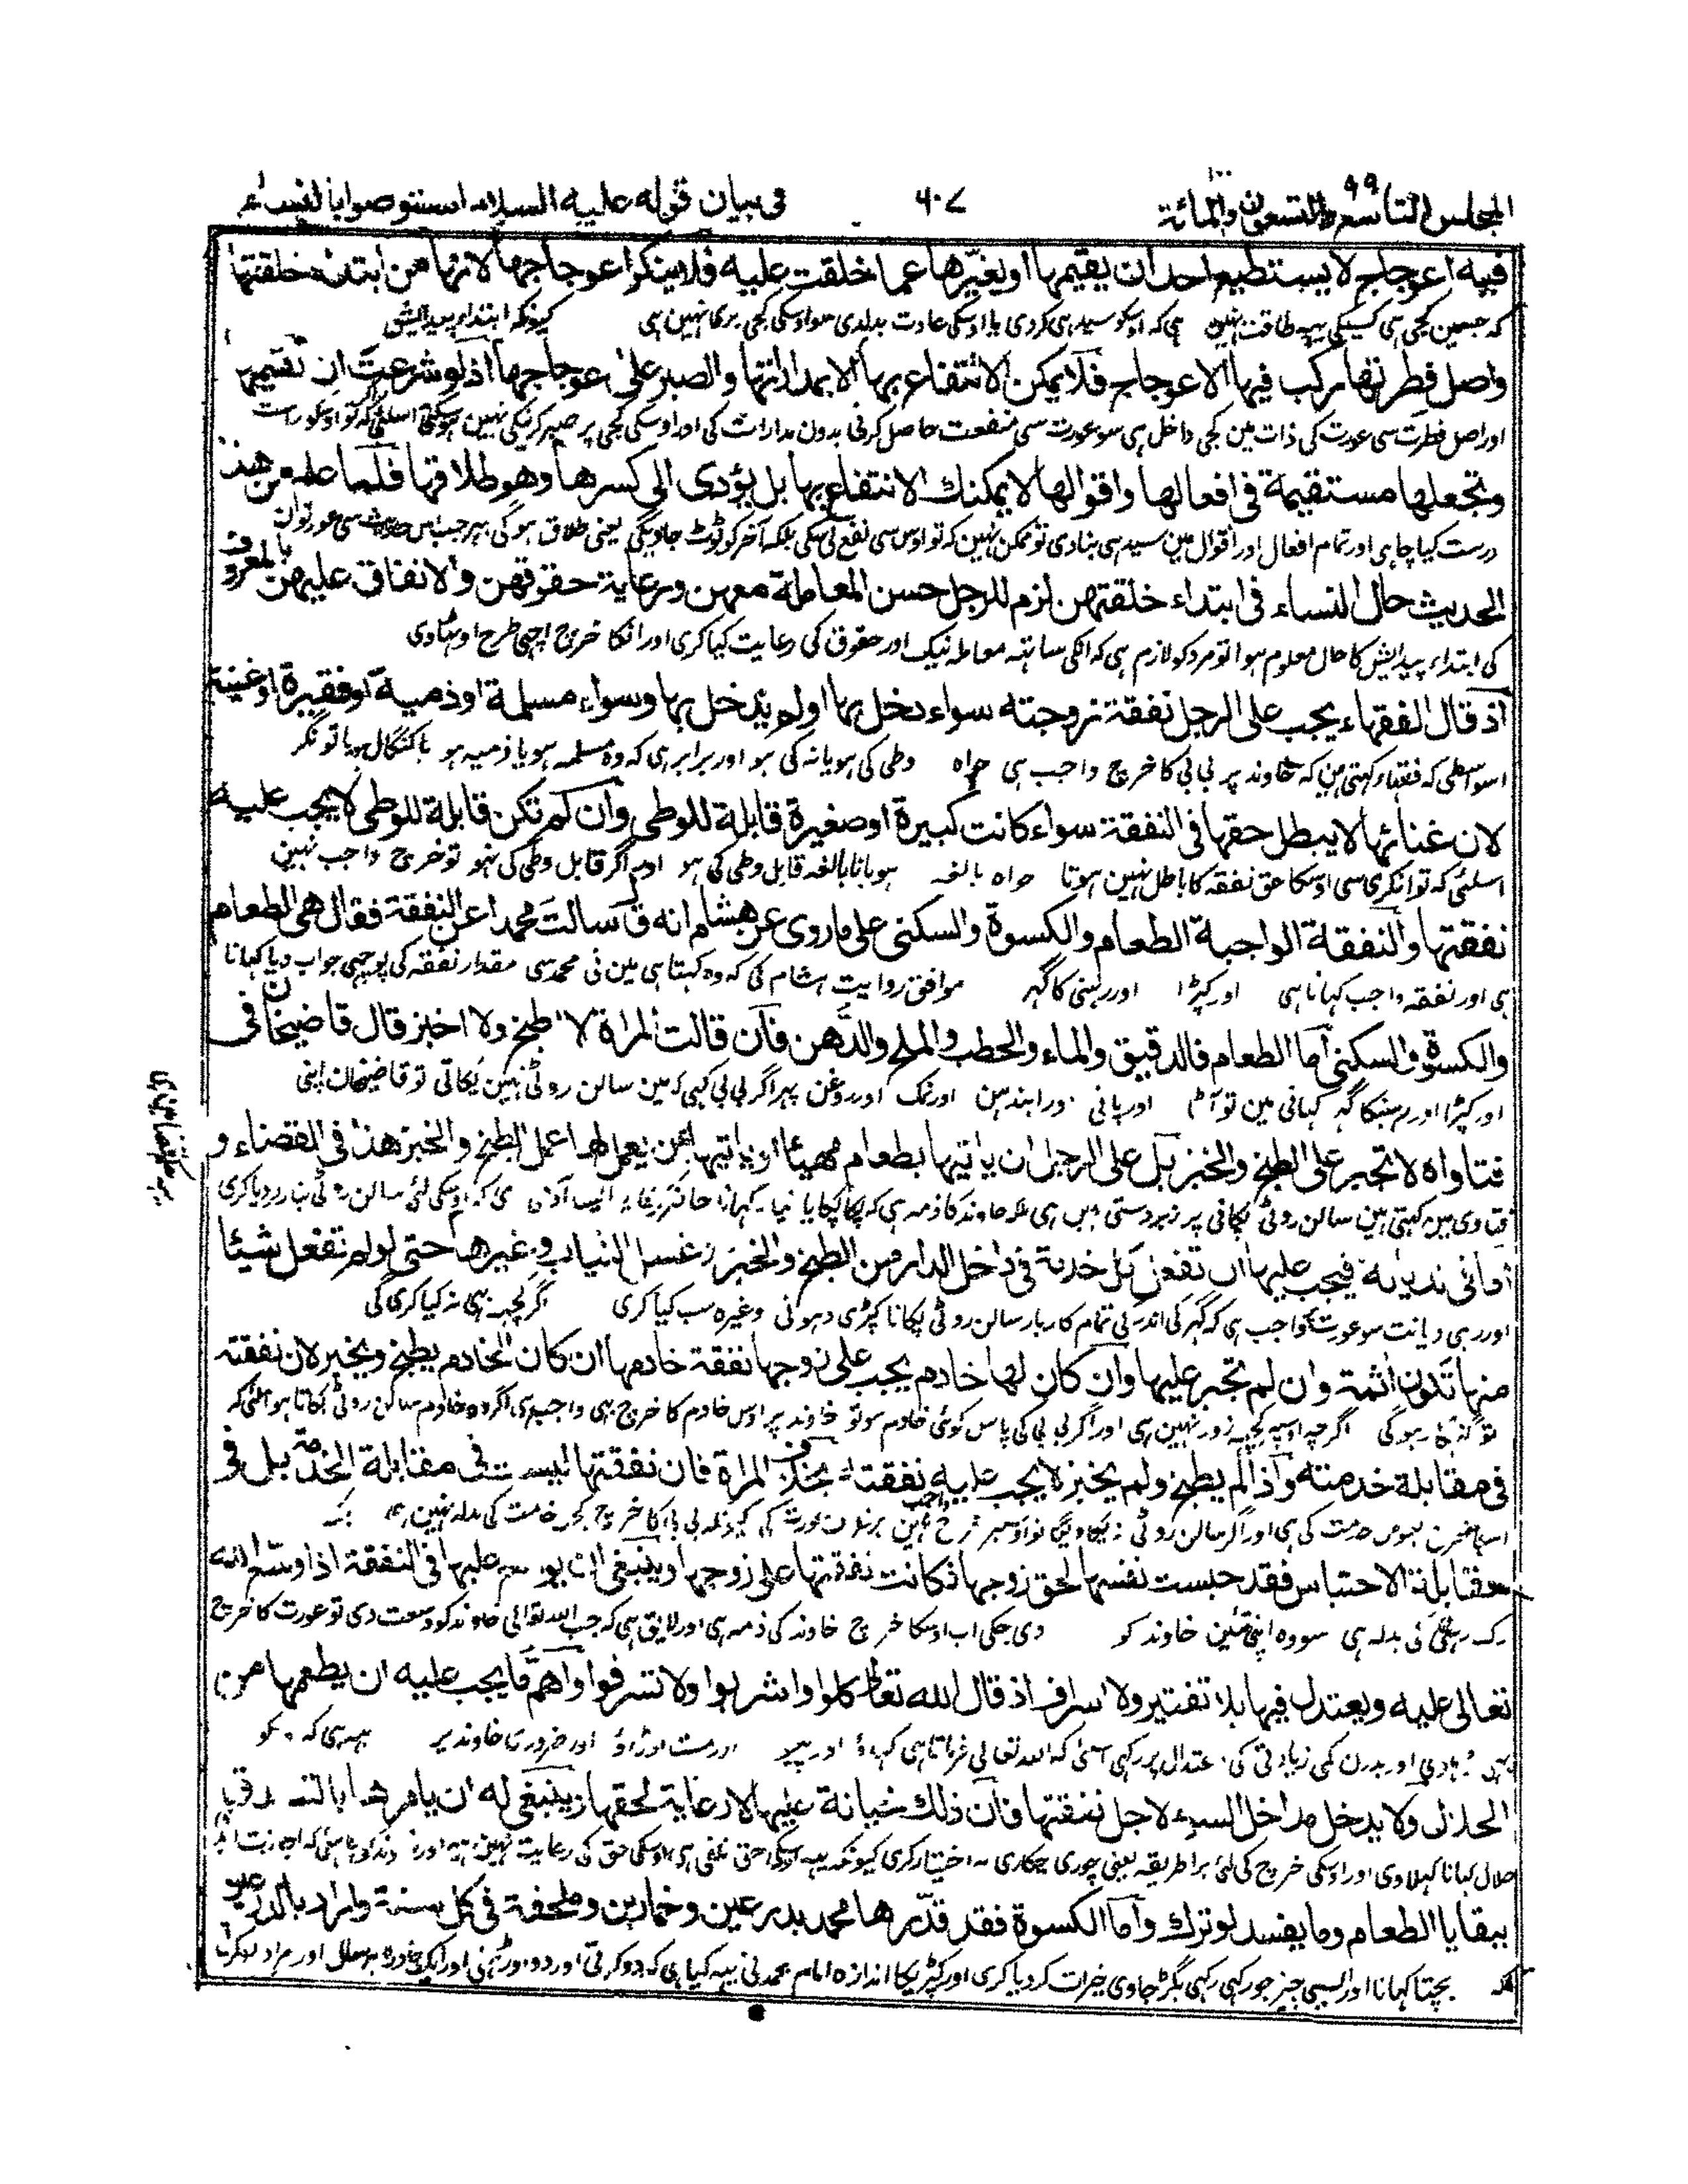 المجلس التاسع والتسعون والمائة ٩٩ ١٠٠
٤٠٧
فى بيان قوله عليه السلام استوصوا بالنساء
فيه اعوجاج لا يستطيع احد ان يقيمها او يغيّرها عما خلقت عليه فلا ينكر اعوجاجها لانها من ابتداء خلقتها
کہ جسمین کجی ہی کسیکی یہہ طاقت نہین ہی کہ اوسکو سیدہی کردی یا اوسکی عادت بدلدی سو اوسکی کجی بری نہین ہی کیونکہ ابتداء پیدایش
واصل فطرتها مركب فيها الاعوجاج فلا يمكن الانتفاع بها الا بمداراتها والصبر على عوجاجها اذ لو شرعت ان تقيمها
اور اصل فطرت سی عورت کی ذات مین کجی داخل ہی سو عورت سی منفعت حاصل کرنی بدون مدارات کی اور اوسکی کجی پر صبر کرنیکی نہین ہوسکتی اسلئی کہ اگر تو اوسکو راست
وتجعلها مستقيمة فى افعالها واقوالها لا يمكنك الانتفاع بها بل يؤدى الى كسرها وهو طلاقها فلما علم من هذا
درست کیا چاہی اور تمام افعال اور اقوال مین سیدہی بنادی تو ممکن نہین کہ تو اوس سی نفع لی سکی بلکہ آخر کو ٹوٹ جاویگی یعنی طلاق ہو گی پہر جب اس حدیث سی عورتون
الحديث حال النساء فى ابتداء خلقتهن لزم للرجل حسن المعاملة معهن ورعاية حقوقهن والانفاق عليهن بالمعروف
کی ابتداء پیدایش کا حال معلوم ہوا تو مرد کو لازم ہی کہ انکی ساتہہ معاملہ نیک اور حقوق کی رعایت کیا کری اور انکا خرچ اچہی طرح اوٹہادی
اذ قال الفقهاء يجب على الرجل نفقة زوجته سواء دخل بها او لم يدخل بها وسواء مسلمة او ذمية او فقيرة او غنية
اسواسطی کہ فقہاء کہتی ہین کہ خاوند پر بی بی کا خرچ واجب ہی خواہ وطی کی ہو یا نہ کی ہو اور برابر ہی کہ وہ مسلمہ ہو یا ذمیہ ہو یا کنگال ہو یا تونگر
لان غنائها لا يبطل حقها فى النفقة سواء كانت كبيرة او صغيرة قابلة للوطى وان لم تكن قابلة للوطى لا يجب عليه
اسلئی کہ توانگری سی اوسکا حق نفقہ کا باطل نہین ہوتا خواہ بالغہ ہو یا نابالغہ قابل وطی کی ہو اور اگر قابل وطی کی نہو تو خرچ واجب نہین
نفقتها والنفقة الواجبة الطعام والكسوة والسكنى على ما روى عن هشام انه قال سالت محمدا عن النفقة فقال هى الطعام
ہی اور نفقہ واجب کہانا ہی اور کپڑا اور رہنی کا گہر موافق روایت ہشام کی کہ وہ کہتا ہی مین نی محمد سی مقدار نفقہ کی پوچہی جواب دیا کہانا
والكسوة والسكنى اما الطعام فالدقيق والماء والحطب والملح والدهن فان قالت المراة لا اطبخ ولا اخبز قال قاضيخان فى
اور کپڑا اور رہنیکا گہر کہانی مین تو آٹا اور پانی اور ایندہن اور نمک اور روغن پہر اگر بی بی کہی کہ مین سالن روٹی نہین پکاتی تو قاضیخان اپنی
فتاواه لا تجبر على الطبخ والخبز بل على الرجل ان ياتيها بطعام مهيئا او ياتيها بمن يعمل لها عمل الطبخ والخبز هذا فى القضاء و
فتاوی مین کہتی ہین سالن روٹی پکانی پر زبردستی نہین ہی خاوند کا ذمہ ہی کہ پکا پکایا
اما فى ديانة فيجب عليها ان تفعل كل خدمة فى داخل الدار من الطبخ والخبز وغسل الثياب وغيرها حتى لو لم تفعل شيئا
اور رہی دیانت سو عورت کو واجب ہی کہ گہر کی اندر کی تمام کاربار سالن روٹی پکانا کپڑی دہونی وغیرہ سب کیا کری اگر کچہہ بہی نہ کیا کری گی
منها تكون اثمة وان لم تجبر عليها وان كان لها خادم يجب على زوجها نفقة خادمها ان كان الخادم يطبخ ويخبز لان نفقته
تو گنہگار ہوگی اگرچہ اوسپہ کچہہ زور نہین ہی اور اگر بی بی کی پاس کوئی خادم ہو تو خاوند پر اوس خادم کا خرچ بہی واجب ہی اگر وہ خادم سالن روٹی پکاتا ہو اسلئی کہ
فى مقابلة خدمته واذا لم يطبخ ولم يخبز لا يجب عليه نفقته بخلاف المراة فان نفقتها ليست فى مقابلة الخدمة بل فى
مقابلة الاحتباس فقد حبست نفسها لحق زوجها فكانت نفقتها على زوجها وينبغى ان يوسع عليها فى النفقة اذا وسّع الله
بدلہ ہی سو وہ اپنی تئین خاوند کو دی چکی اب اوسکا خرچ خاوند کی ذمہ ہی اور لایق ہی کہ جب اللہ تعالی خاوند کو وسعت دی تو عورت کا خرچ
تعالى عليه ويعتدل فيها بلا تقتير ولا اسراف اذ قال الله تعالى كلوا واشربوا ولا تسرفوا واهم ما يجب عليه ان يطعمها من
اور بدون کمی زیادتی کی اعتدال پر رکہی اسلئی کہ اللہ تعالی فرماتا ہی کہاؤ اور پیو اور مت اوڑاؤ اور ضرور تر خاوند پر یہہ ہی کہ
الحلال ولا يدخل مداخل السوء لاجل نفقتها فان ذلك خيانة عليها لا رعاية لحقها وينبغى له ان يامرها بالتصدق
حلال کہانا کہلاوی اور اوسکی خرچ کی لئی برا طریقہ یعنی چوری چکاری نہ اختیار کری کیونکہ یہہ اوسکی حق تلفی ہی اوسکی حق کی رعایت نہین
ببقايا الطعام وما يفسد لو ترك واما الكسوة فقد قدّرها محمد بدرعين وخمارين وملحفة فى كل سنة والمراد بالدرعين
بچتا کہانا اور ایسی چیز جو رکہی رکہی بگڑ جاوی خیرات کردیا کری اور کپڑیکا اندازہ امام محمد نی یہہ کیا ہی کہ دو کرتی اور دو اوڑہنی اور ایک چادرہ ہر سال اور مراد